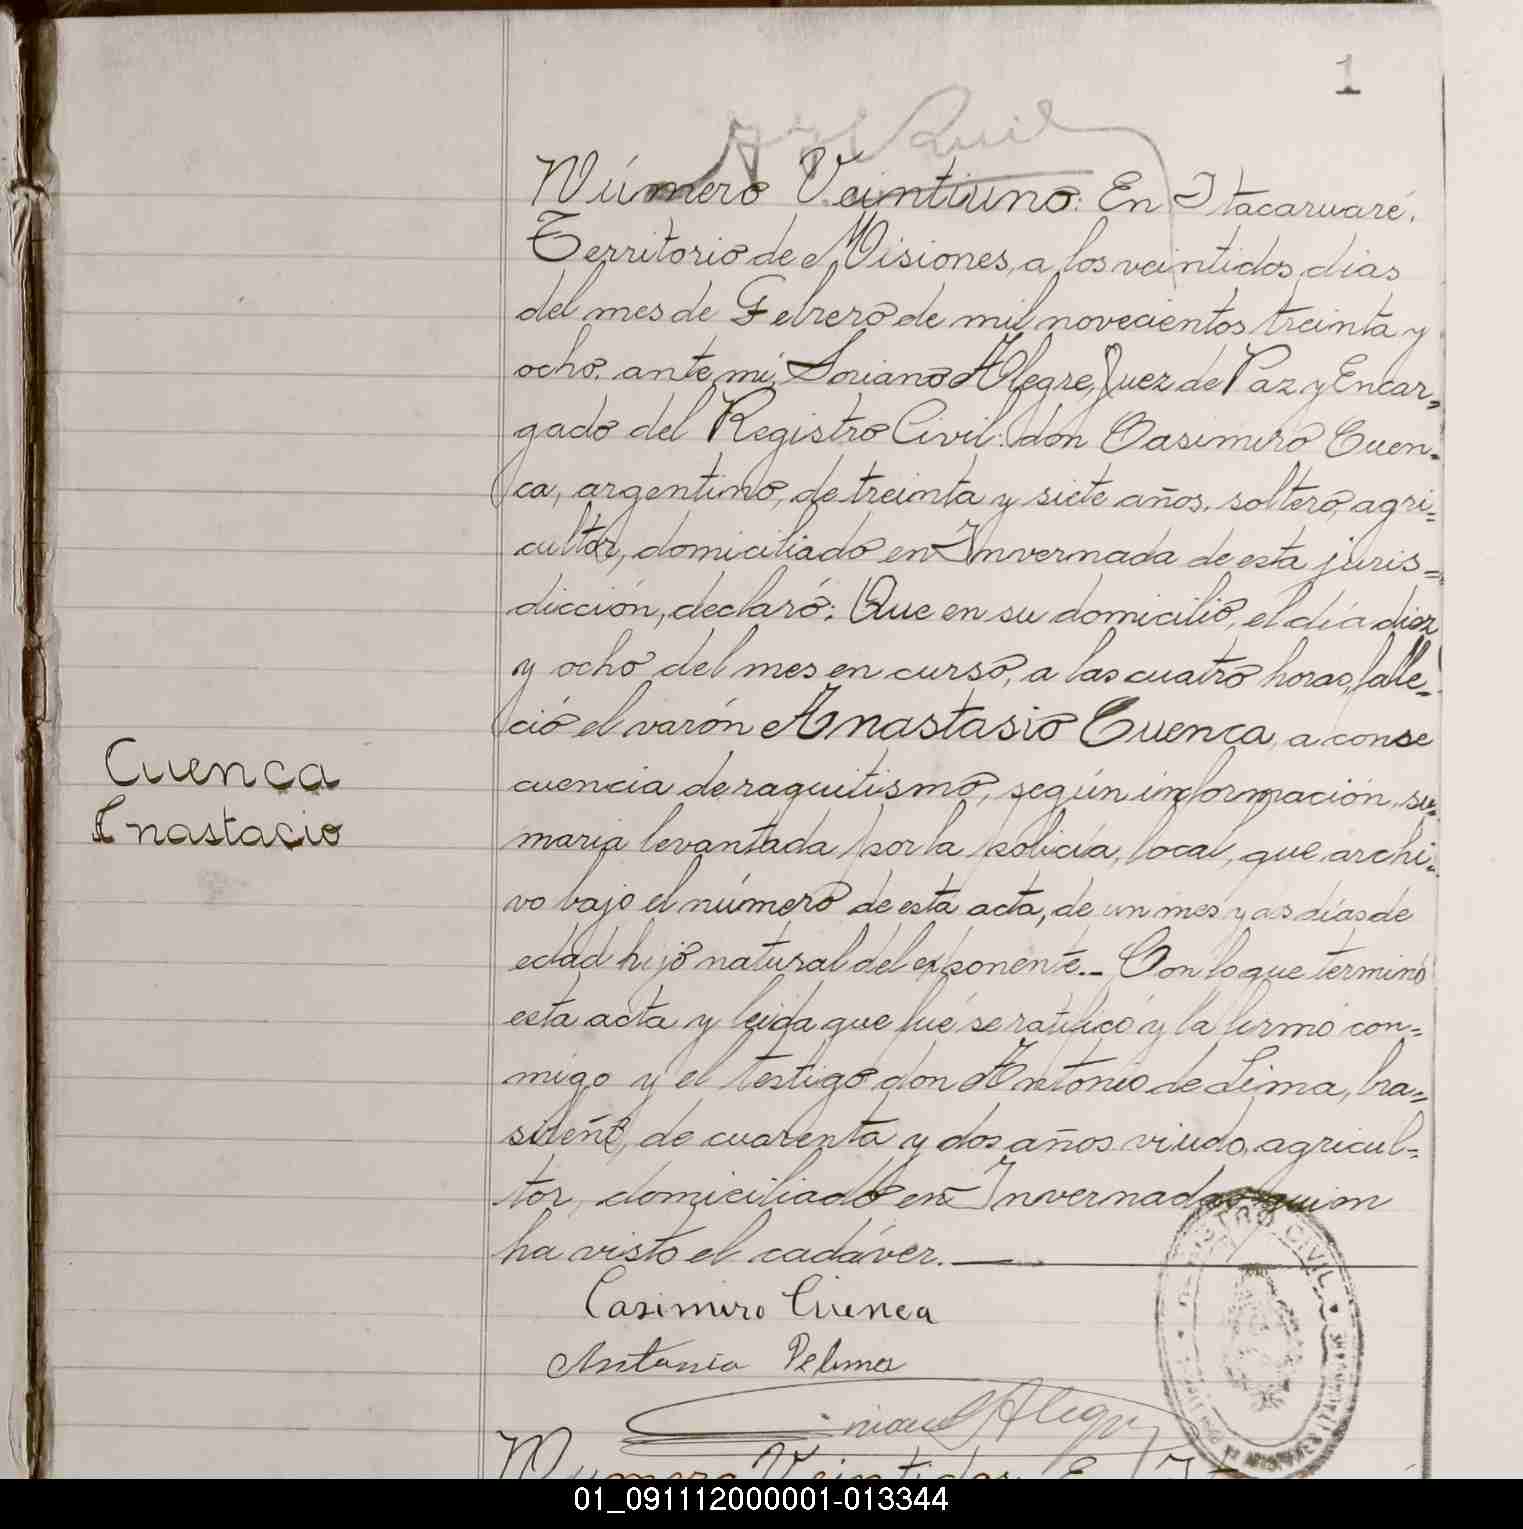 1
Número Veintiuno: En Itacaruaré,
Territorio de Misiones, a los veintidos dias
del mes de Febrero de mil novecientos treinta y
ocho, ante mi, Soriano Alegre, Juez de Paz y Encar=
gado del Registro Civil: don Casimiro Cuen=
ca, argentino, de treinta y siete años, soltero, agri=
cultor, domiciliado en Invernada de esta juris=
dicción, declaró: Que en su domicilio, el día diez
y ocho del mes en curso, a las cuatro horas, falle=
ció el varón Anastasio Cuenca, a conse
cuencia de raquitismo, según información su=
maria levantada por la policía local, que archi=
vo bajo el número de esta acta, de un mes y días de
edad hijo natural del exponente.- Con lo que terminó
esta acta y leida que fué se ratificó y la firmó con=
migo y el testigo don Antonio de Lima, bra=
sileñ, de cuarenta y dos años viudo, agricul=
tor, domiciliado en Invernada, quien
ha visto el cadáver.
Cuenca
Anastacio
Casimiro Cuenca
Antonio Delima
Alegre
REGISTRO CIVIL
Número Veintidos: En
01_091112000001-013344